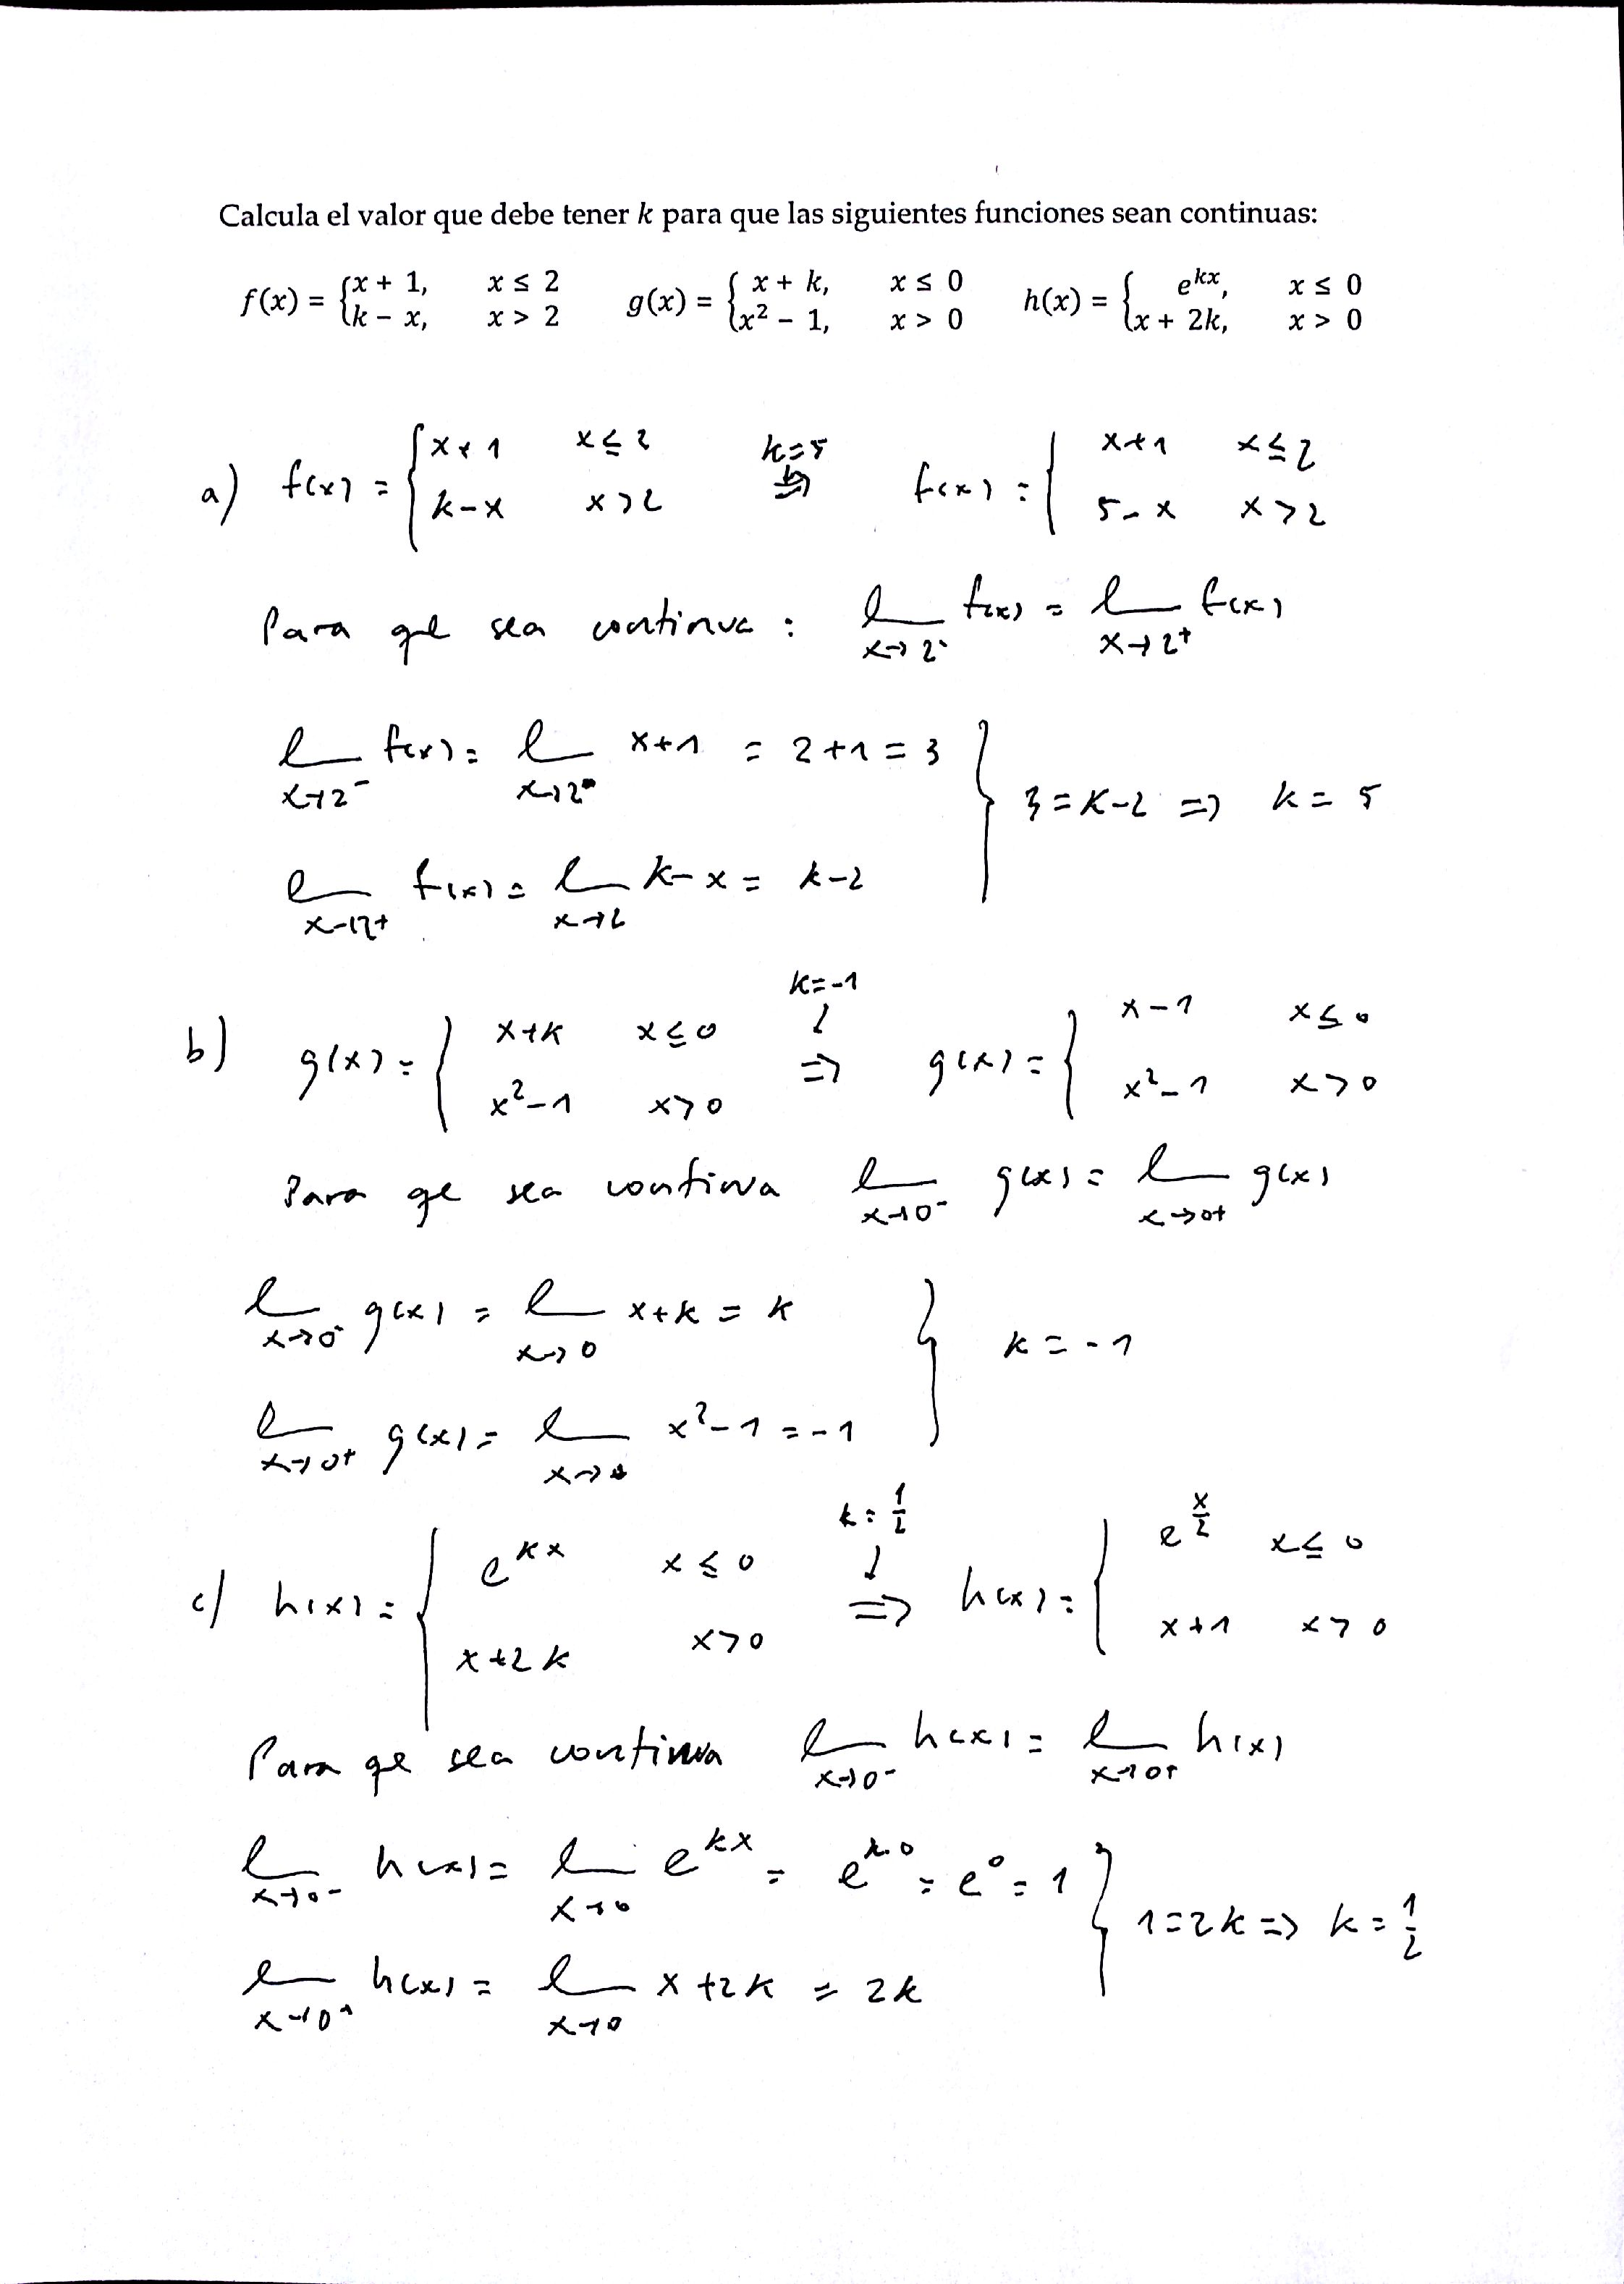 Calcula el valor que debe tener k para que las siguientes funciones sean continuas:
f(x) = { x + 1, x ≤ 2 ; k − x, x > 2    g(x) = { x + k, x ≤ 0 ; x² − 1, x > 0    h(x) = { e^{kx}, x ≤ 0 ; x + 2k, x > 0
a) f(x) = { x+1 x≤2 ; k−x x>2    k=5 ⇒    f(x) = { x+1 x≤2 ; 5−x x>2
Para que sea continua : lim_{x→2⁻} f(x) = lim_{x→2⁺} f(x)
lim_{x→2⁻} f(x) = lim_{x→2} x+1 = 2+1 = 3 } 3 = k−2 ⇒ k = 5
lim_{x→2⁺} f(x) = lim_{x→2} k−x = k−2
b) g(x) = { x+k x≤0 ; x²−1 x>0    k=−1 ↓ ⇒    g(x) = { x−1 x≤0 ; x²−1 x>0
Para qe sea continva lim_{x→0⁻} g(x) = lim_{x→0⁺} g(x)
lim_{x→0⁻} g(x) = lim_{x→0} x+k = k } k = −1
lim_{x→0⁺} g(x) = lim_{x→0} x²−1 = −1
c) h(x) = { e^{kx} x≤0 ; x+2k x>0    k=1/2 ↓ ⇒    h(x) = { e^{x/2} x≤0 ; x+1 x>0
Para qe sea continua lim_{x→0⁻} h(x) = lim_{x→0⁺} h(x)
lim_{x→0⁻} h(x) = lim_{x→0} e^{kx} = e^{k·0} = e⁰ = 1 } 1=2k ⇒ k = 1/2
lim_{x→0⁺} h(x) = lim_{x→0} x+2k = 2k